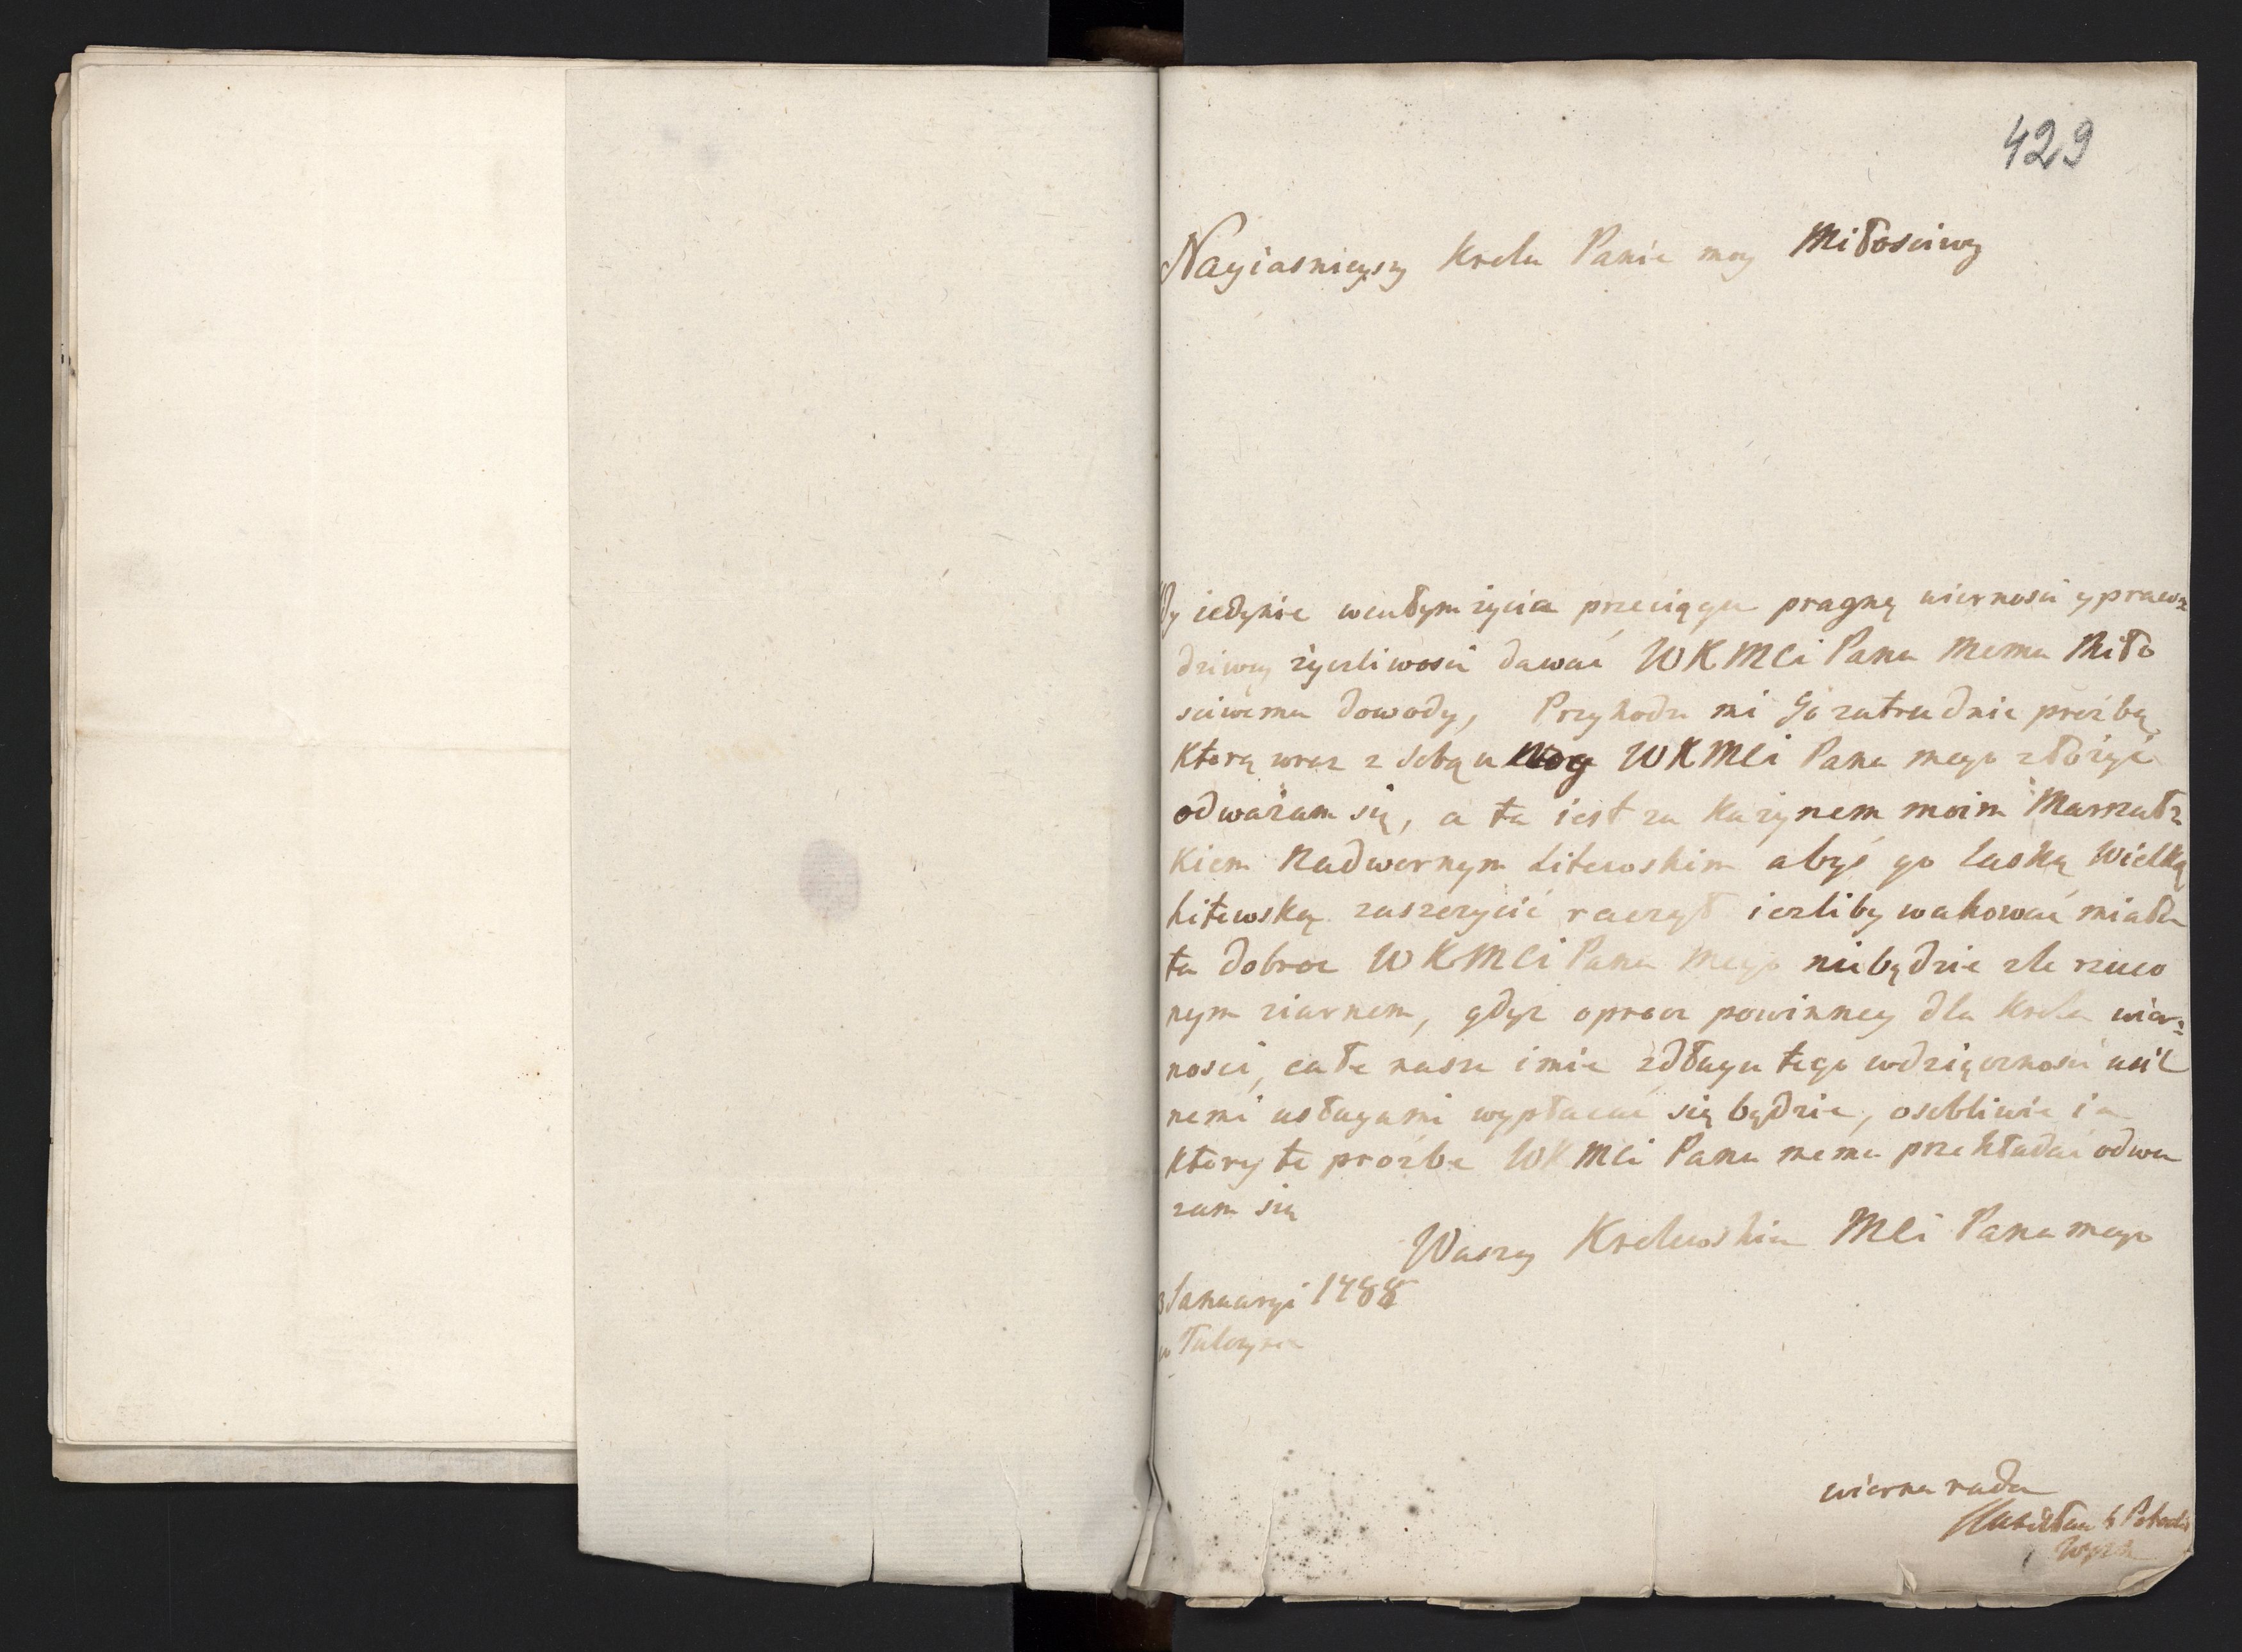 429
Nayiasnieyszy Krolu Panie moy Miłosciwy
Gdy iedynie wcałym zycia przeciągu pragnę wiernosci y praw=
dziwey życzliwosci dawać WKMCi Panu Memu Miło
sciwemu dowody, Przyhodzi mi Go zatrudnic prożbą
Ktorą wraz z sobą u Nog WKMCi Pana mego złożyć
odważam się, a ta iest za Kuzynem moim Marszał=
Kiem Nadwornym Litewskim abyś go Laską Wielką
Litewską zaszczycić raczył iezliby wakować miała
ta dobroc WKMCi Pana Mego niebędzie zle rzuco
nym ziarnem, gdyz oprocz powinney dla Krola wier=
nosci, całe nasze imie zdługu tego wdzięcznosci usil
nemi usługami wypłacać się będzie, osobliwie ia
Ktory te prożbe WKMCi Panu memu przekładać odwa
zam się
Waszey Krolewskiey MCi Pana mego
3 Januaryi 1788
w Tulczynie
wierna rada
Stanisław S Potocki